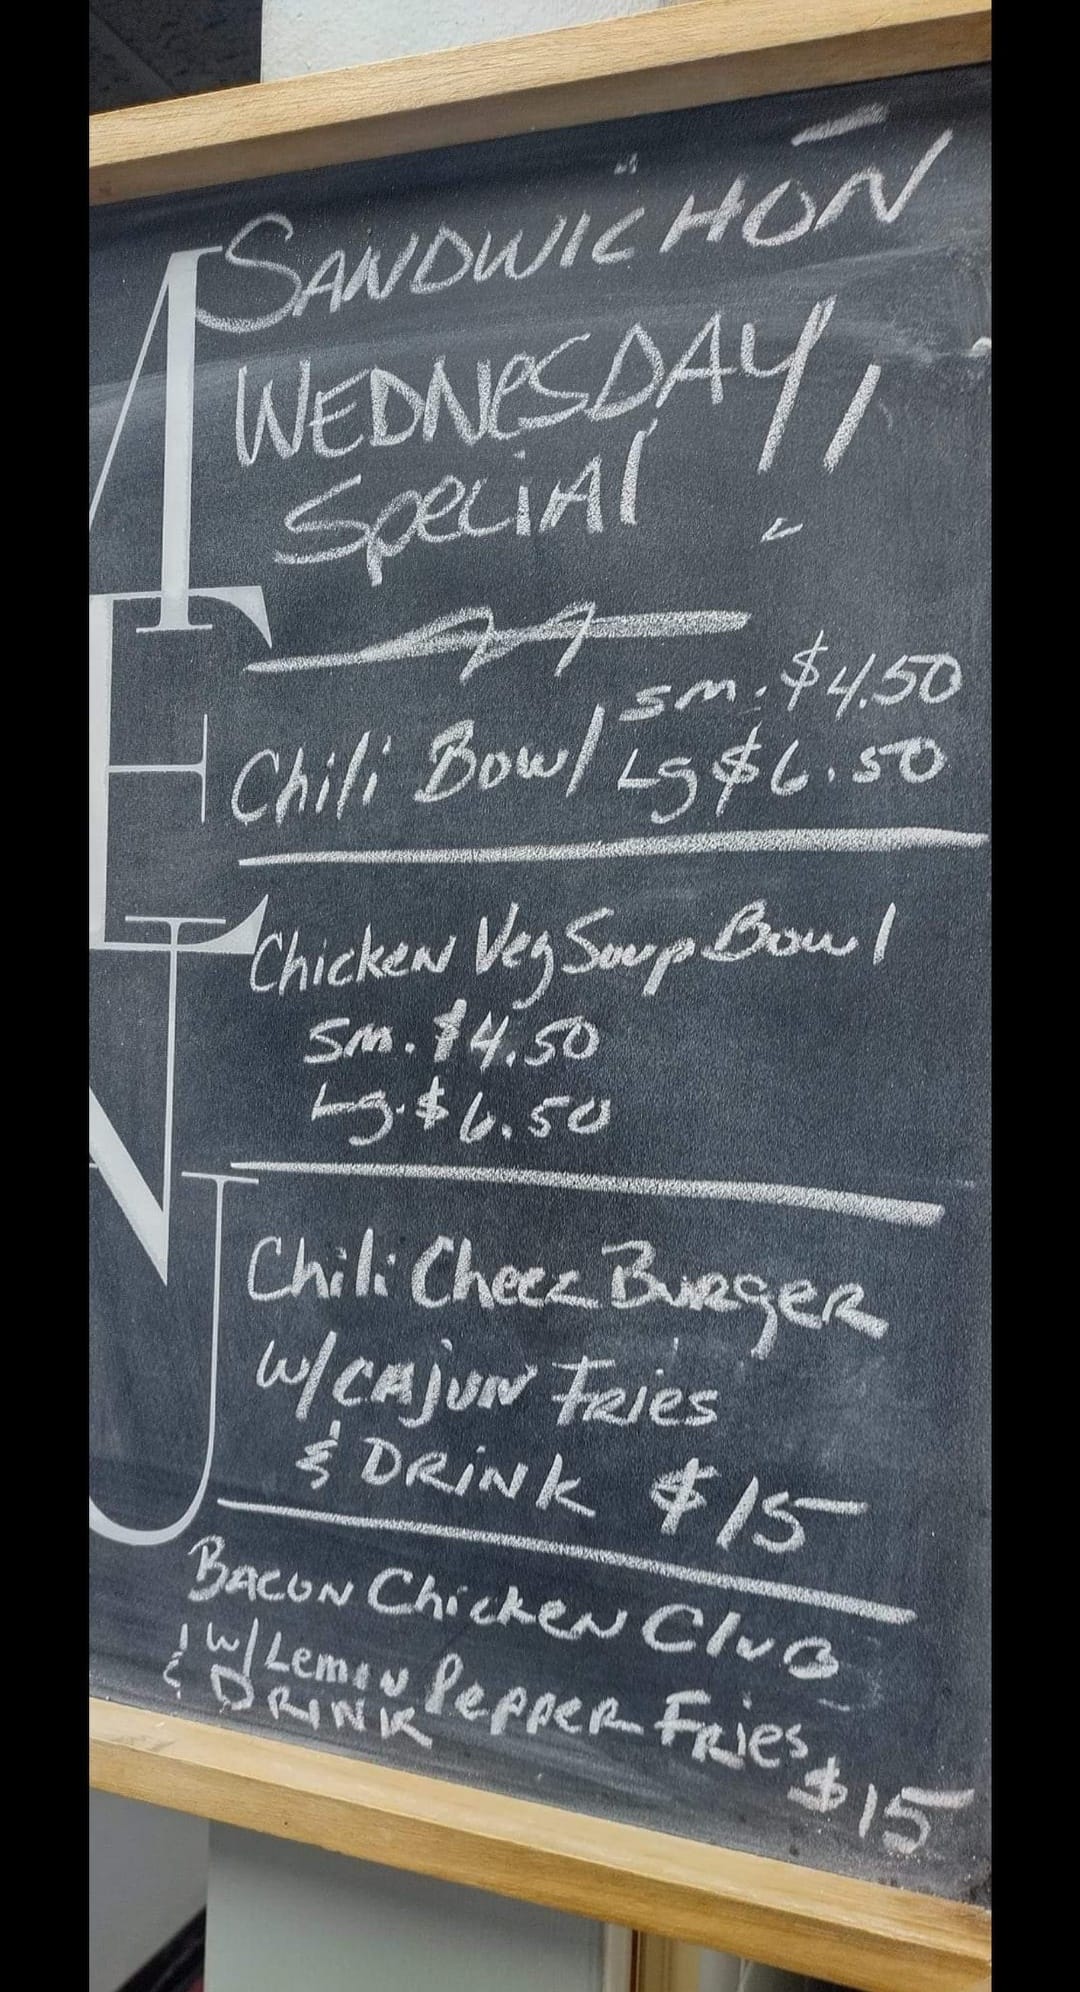 MENU
SANDWICHÖN
WEDNESDAY
Special
Chili Bowl sm. $4.50
Lg $6.50
Chicken Veg Soup Bowl
Sm. $4.50
Lg. $6.50
Chili Cheez Burger
w/ CAJUN FRies
& DRiNK $15
BACON Chicken Club
w/ Lemon Pepper Fries
& DRINK
$15